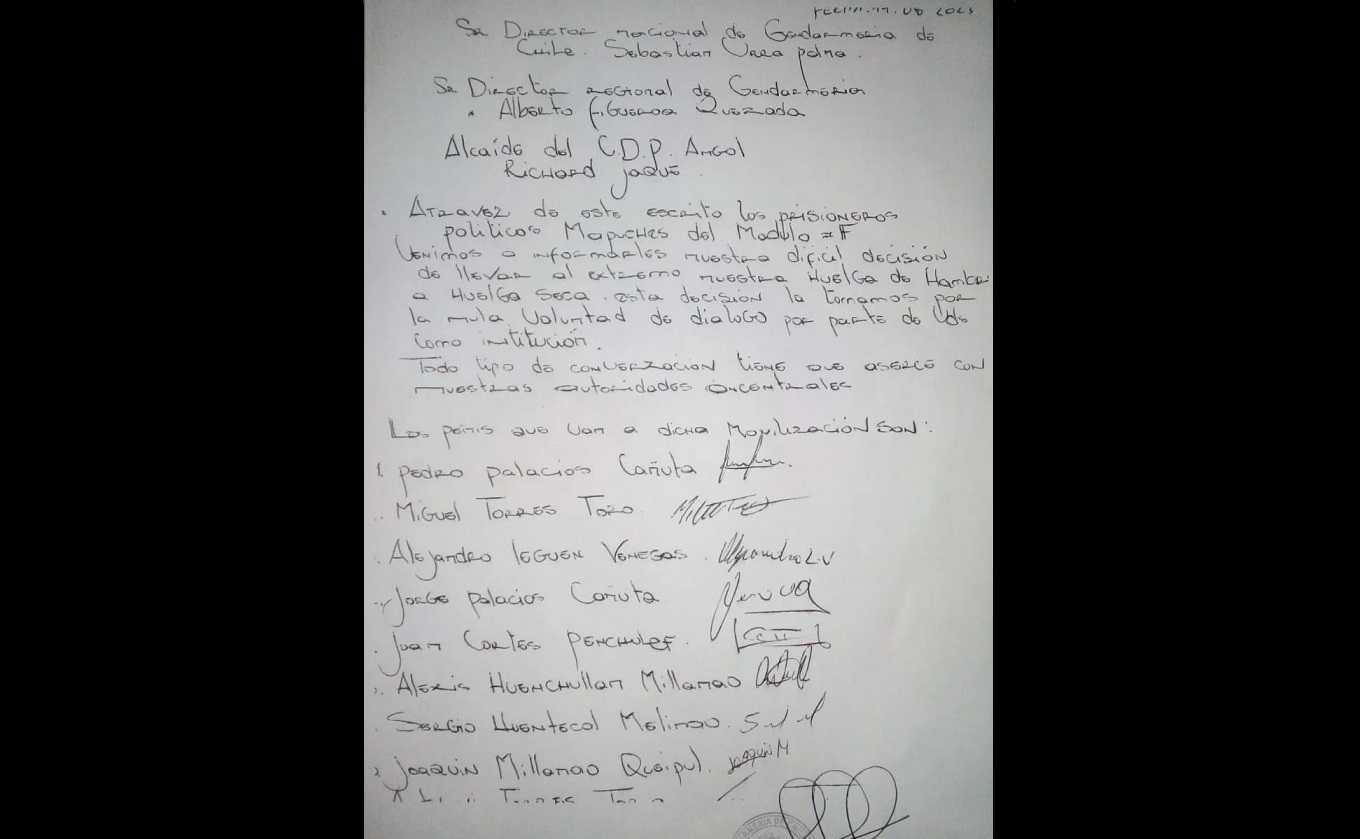 FECHA. 17. 08 2023
Sr Director nacional de Gendarmeria de
Chile. Sebastian Urra palma.
Sr Director regional de Gendarmeria
Alberto Figueroa Quezada
Alcaíde del C.D.P. Angol
Richard Jaque
Atravez de este escrito los prisioneros
politicos Mapuches del Modulo = F
Venimos a informarles nuestra dificil decisión
de llevar al extremo nuestra Huelga de Hambre
a Huelga Seca. esta decisión la tomamos por
la mula Voluntad de dialogo por parte de Uds
como intitución.
Todo tipo de converzacion tiene que aserce con
nuestras autoridades
Los peñis que van a dicha Movilización son:
1. Pedro palacios Cañuta
Miguel Torres Toro.
Alejandro leguen Venegas. Alejandro L.V
Jorge palacios Cañuta
Juan Cortes Penchulef.
Alexis Huenchullan Millanao
Sergio Huentecol Melinao.
Joaquin Millanao Queipul. Joaquin M
Torres Toro